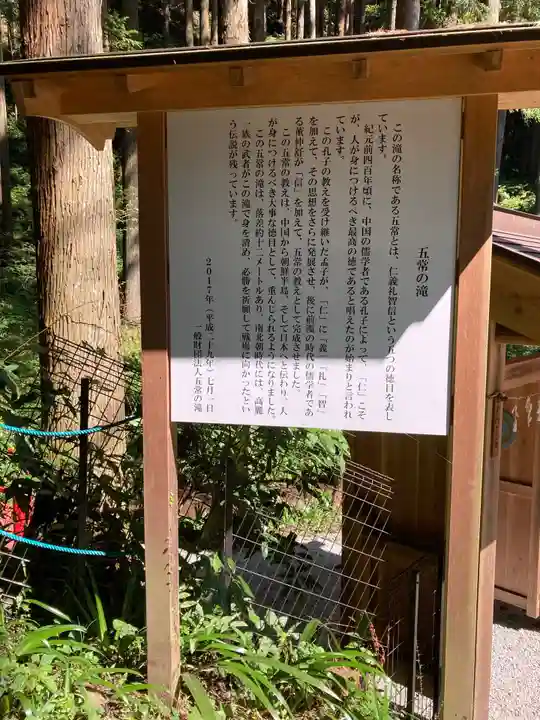 五常の滝
この滝の名称である五常とは、仁義礼智信という五つの徳目を表し
ています。
紀元前四百年頃に、中国の儒学者である孔子によって、「仁」こそ
が、人が身につけるべき最高の徳であると唱えたのが始まりと言われ
ています。
この孔子の教えを受け継いだ孟子が、「仁」に「義」「礼」「智」
を加えて、その思想をさらに発展させ、後に前漢の時代の儒学者であ
る董仲舒が「信」を加えて、五常の教えとして完成させました。
この五常の教えは、中国から朝鮮半島、そして日本へと伝わり、人
が身につけるべき大事な徳目として、重んじられるようになりました。
この五常の滝は、落差約十二メートルあり、南北朝時代には、高麗
一族の武者がこの滝で身を清め、必勝を祈願して戦場に向かったとい
う伝説が残っています。
2017年(平成二十九年)七月一日
一般財団法人五常の滝